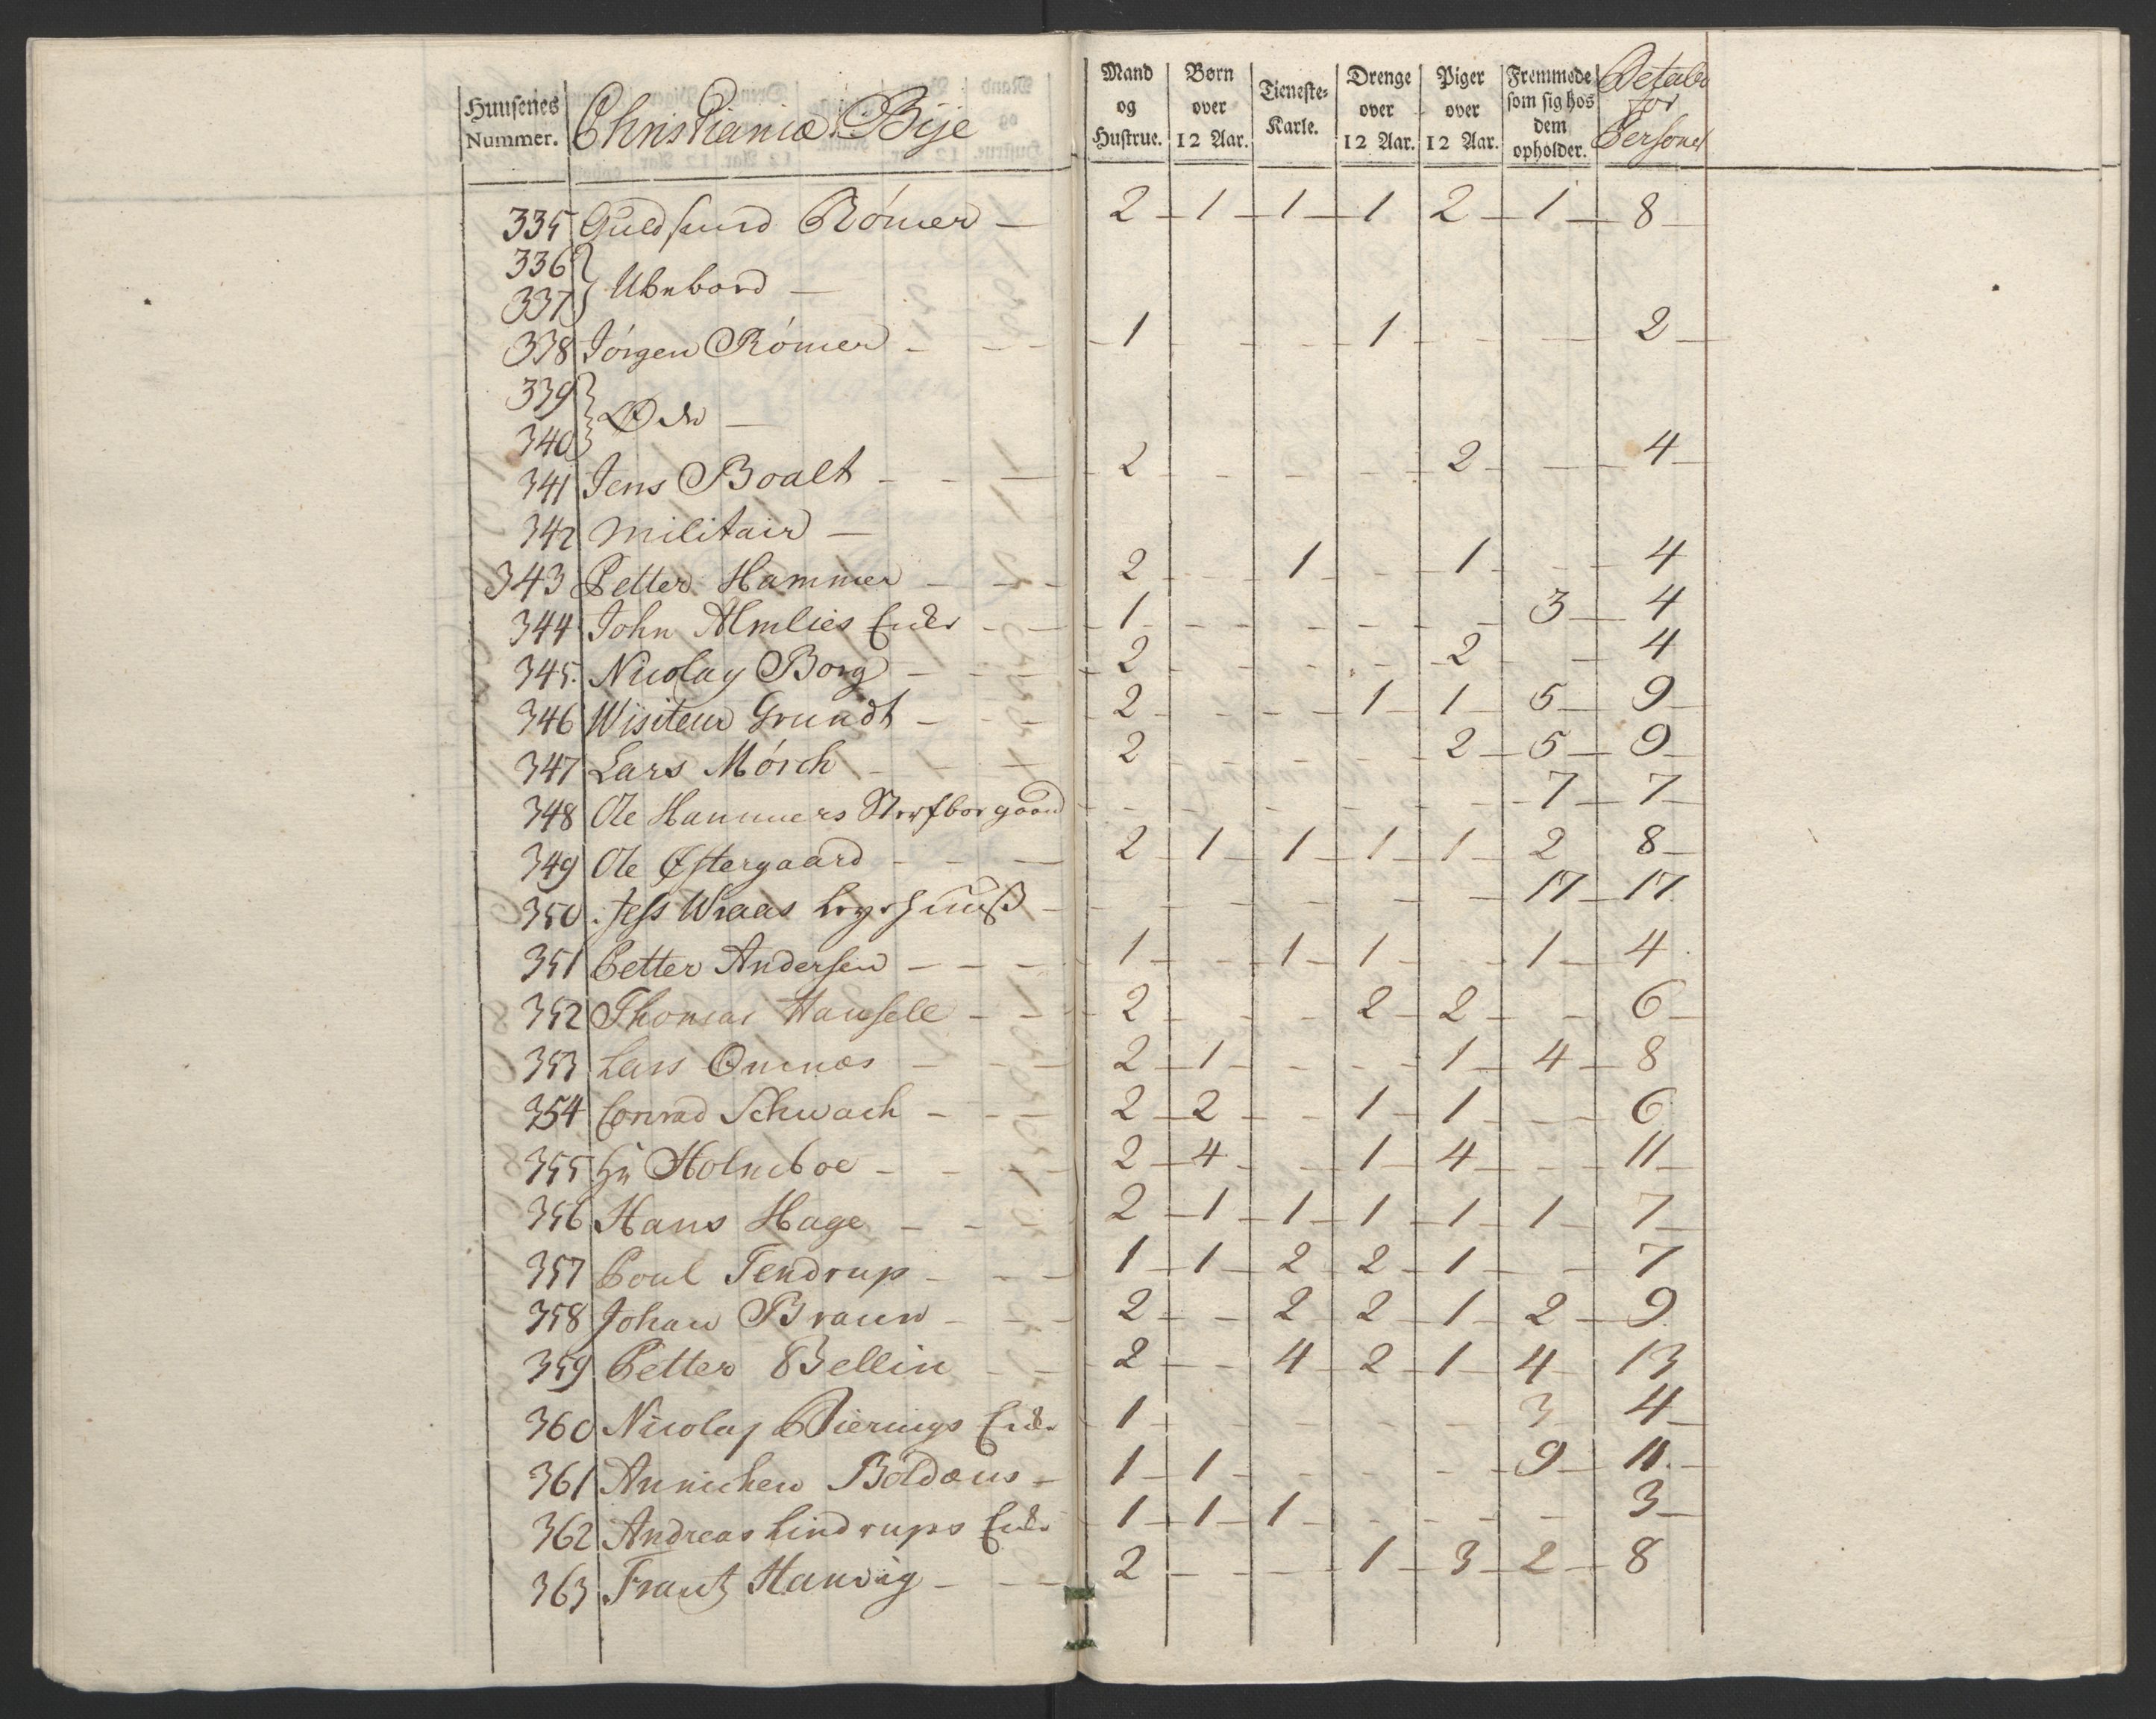 Huusenes Nummer. Christianiæ Bÿe Mand og Hustrue. Børn over 12 Aar. Tieneste-Karle. Drenge over 12 Aar. Piger over 12 Aar. Fremmede som sig hos dem opholder. Betaler for Personer
335 Guldsmed Rómer — 2 1 1 1 2 1 8
336 337 } Ubebord —
338 Jórgen Rómer 1 1 2
339 340 } Øde —
341 Jens Boalt 2 2 4
342 Militair —
343 Petter Hammer 2 1 1 4
344 John Almlies Enke 1 3 4
345. Nicolay Borg 2 2 4
346 Wisiteur Grundt 2 1 1 5 9
347 Lars Mórch 2 2 5 9
348 Ole Hammers 7 7
349 Ole Østergaard 2 1 1 1 1 2 8
350. Jess Wraas 17 17.
351 Petter Andersen 1 1 1 1 4
352 Thomas Hansele 2 2 2 6
353 Lars Omnæs 2 1 1 4 8
354 Conrad Schwach 2 2 1 1 6
355 Hr Holmboe 2 4 1 4 11
356 Hans Hage 2 1 1 1 1 1 7
357 Poul Tendrup 1 1 2 2 1 7
358 Johan Braun 2 2 2 1 2 9
359 Petter Bellin 2 4 2 1 4 13
360 Nicolaj Pierings Enke 1 3 4
361 Annichen Boldæus 1 1 9 11.
362 Andreas Lindrups Enke 1 1 1 3
363 Frantz Hanvig 2 1 3 2 8